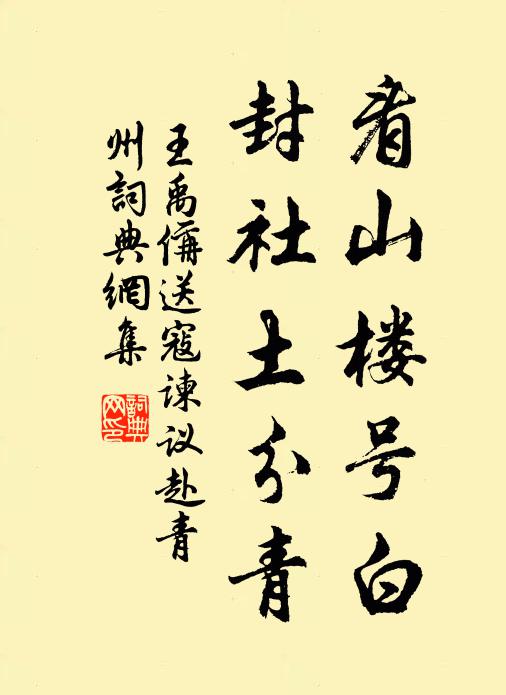 看山楼号白
封社土分青
王禹偁送寇谏议赴青
州詞典網集
詞典
网印